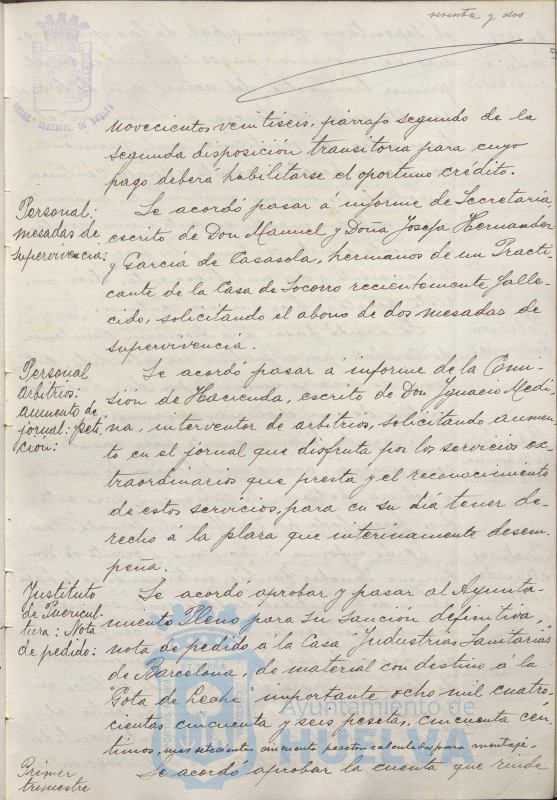 sesenta y dos
novecientos veintiseis, párrafo segundo de la
segunda disposición transitoria para cuyo
pago deberá habilitarse el oportuno crédito.
Personal:
mesadas de
supervivencia:
Se acordó pasar á informe de Secretaria,
escrito de Don Manuel y Doña Josefa Hernandez
y García de Casasola, hermanos de un Practi-
cante de la Casa de Socorro recientemente falle-
cido, solicitando el abono de dos mesadas de
supervivencia.
Personal
arbitrios:
aumento de
jornal: peti-
ción:
Se acordó pasar á informe de la Comi-
sión de Hacienda, escrito de Don Ignacio Medi-
na, interventor de arbitrios, solicitando aumen-
to en el jornal que disfruta por los servicios ex-
traordinarios que presta y el reconocimiento
de estos servicios, para en su dia tener de-
recho á la plaza que interinamente desem-
peña.
Instituto
de Puericul-
tura: Nota
de pedido:
Se acordó aprobar y pasar al Ayunta-
miento Pleno para su sanción definitiva,
nota de pedido á la Casa "Industrias Sanitarias"
de Barcelona, de material con destino á la
"Gota de Leche" importante ocho mil cuatro-
cientas cincuenta y seis pesetas, cincuenta cén-
timos, mas setecientas cincuenta pesetas calculadas para montaje.
Primer
trimestre
Se acordó aprobar la cuenta que rinde
Ayuntamiento de
HUELVA